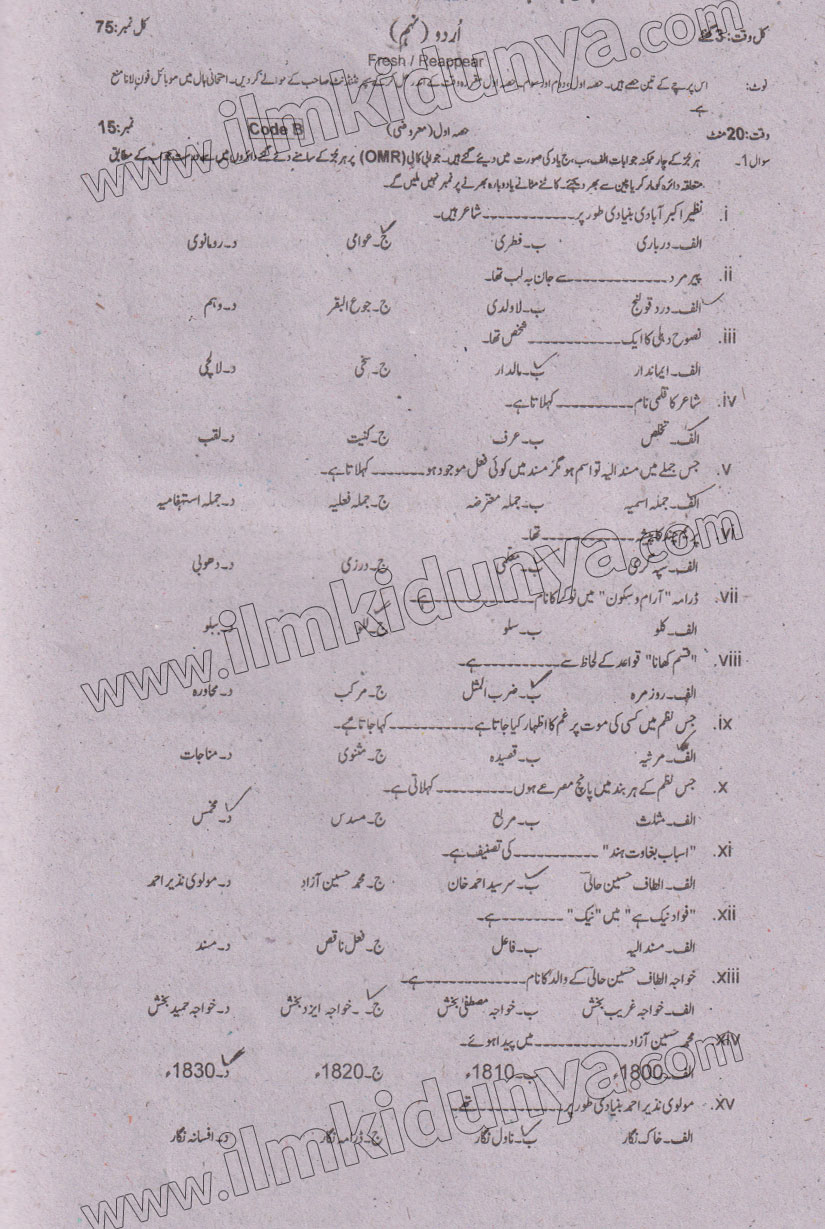 کل وقت: 3 گھنٹے اُردو (نہم) کل نمبر: 75
Fresh / Reappear
نوٹ: اس پرچے کے تین حصے ہیں۔ حصہ اول، دوم اور سوم۔ حصہ اول مقررہ وقت کے اندر حل کر کے سپرنٹنڈنٹ صاحب کے حوالے کر دیں۔ امتحانی ہال میں موبائل فون لانا منع
ہے۔
وقت: 20 منٹ حصہ اول (معروضی) Code B نمبر: 15
سوال 1۔ ہر جُز کے چار ممکنہ جوابات الف، ب، ج یا د کی صورت میں دیئے گئے ہیں۔ جوابی کاپی (OMR) پر ہر جُز کے سامنے دئے گئے دائروں میں سے درست جواب کے مطابق
متعلقہ دائرہ کو مارکر یا پین سے بھر دیجئے۔ کاٹنے مٹانے یا دوبارہ بھرنے پر نمبر نہیں ملیں گے۔
i. نظیر اکبر آبادی بنیادی طور پر ------------ شاعر ہیں۔
الف۔ درباری ب۔ فطری ج۔ عوامی د۔ رومانوی
ii. پیر مرد ------------ سے جان بہ لب تھا۔
الف۔ درد قولنج ب۔ لاولدی ج۔ جوع البقر د۔ وہم
iii. نصوح دہلی کا ایک ------------ شخص تھا۔
الف۔ ایماندار ب۔ مالدار ج۔ سخی د۔ لالچی
iv. شاعر کا قلمی نام ---------- کہلاتا ہے۔
الف۔ تخلص ب۔ عرف ج۔ کنیت د۔ لقب
v. جس جملے میں مسند الیہ تو اسم ہو مگر مسند میں کوئی فعل موجود ہو ------- کہلاتا ہے۔
الف۔ جملہ اسمیہ ب۔ جملہ معترضہ ج۔ جملہ فعلیہ د۔ جملہ استفہامیہ
vi. پریم چند کا پیشہ ------------ تھا۔
الف۔ سپہ گری ب۔ معلمی ج۔ درزی د۔ دھوبی
vii. ڈرامہ "آرام و سکون" میں نوکر کا نام ------------ ہے۔
الف۔ کلو ب۔ سلو ج۔ للو د۔ ببلو
viii. "قسم کھانا" قواعد کے لحاظ سے ---------- ہے۔
الف۔ روزمرہ ب۔ ضرب المثل ج۔ مرکب د۔ محاورہ
ix. جس نظم میں کسی کی موت پر غم کا اظہار کیا جاتا ہے ---------- کہا جاتا ہے۔
الف۔ مرثیہ ب۔ قصیدہ ج۔ مثنوی د۔ مناجات
x. جس نظم کے ہر بند میں پانچ مصرعے ہوں ---------- کہلاتی ہے۔
الف۔ مثلث ب۔ مربع ج۔ مسدس د۔ مخمس
xi. "اسباب بغاوت ہند" ---------- کی تصنیف ہے۔
الف۔ الطاف حسین حالی ب۔ سرسید احمد خان ج۔ محمد حسین آزاد د۔ مولوی نذیر احمد
xii. "فواد نیک ہے" میں "نیک" -------- ہے۔
الف۔ مسند الیہ ب۔ فاعل ج۔ فعل ناقص د۔ مسند
xiii. خواجہ الطاف حسین حالی کے والد کا نام ------------ ہے۔
الف۔ خواجہ غریب بخش ب۔ خواجہ مصطفٰی بخش ج۔ ۔ خواجہ ایزد بخش د۔ خواجہ حمید بخش
xiv. محمد حسین آزاد ------------ میں پیدا ہوئے۔
الف۔ 1800ء ب۔ 1810ء ج۔ 1820ء د۔ 1830ء
xv. مولوی نذیر احمد بنیادی طور پر ------------ تھے۔
الف۔ خاکہ نگار ب۔ ناول نگار ج۔ ڈرامہ نگار د۔ افسانہ نگار
www.ilmkidunya.com
www.ilmkidunya.com
www.ilmkidunya.com